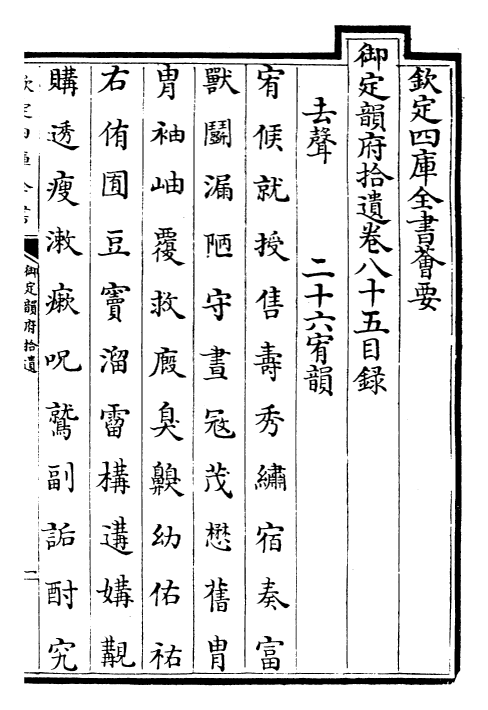 欽定四庫全書薈要
御定韻府拾遺卷八十五目録
去聲　二十六宥韻
宥候就授售壽秀繡宿奏富
獸鬭漏陋守晝冦茂懋舊胄
冑袖岫覆救廏臭齅幼佑祐
右侑囿豆竇溜霤構遘媾覯
購透瘦漱瘶呪鷲副詬酎究
御定韻府拾遺
一